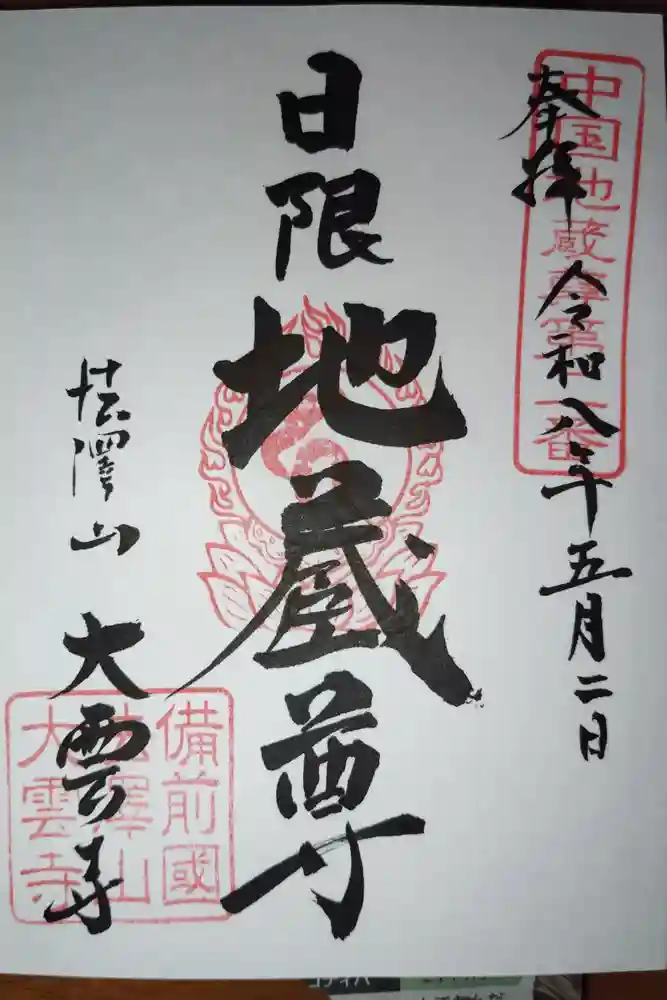 奉拝 令和八年五月二日
中国地蔵尊第二番
日限地蔵尊
法澤山 大雲寺
備前國
法澤山
大雲寺